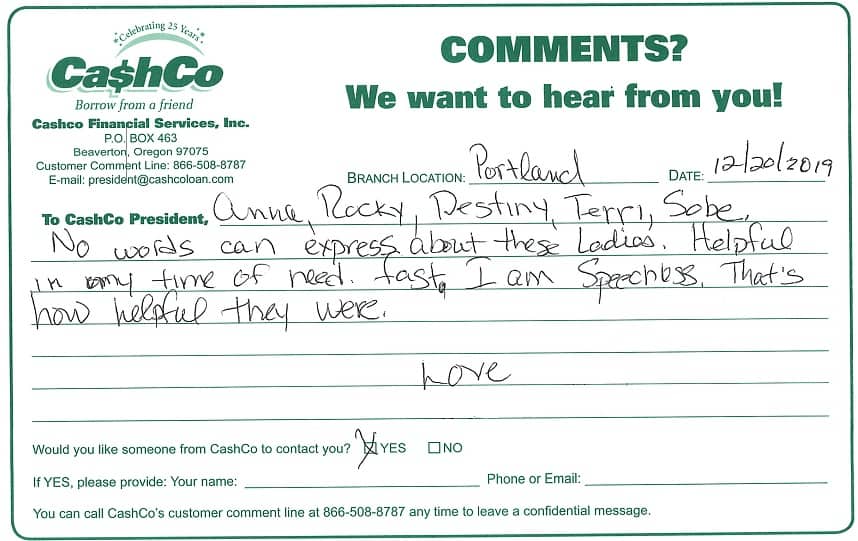 *Celebrating 25 Years*
Ca$hCo
Borrow from a friend
Cashco Financial Services, Inc.
P.O. BOX 463
Beaverton, Oregon 97075
Customer Comment Line: 866-508-8787
E-mail: president@cashcoloan.com
COMMENTS?
We want to hear from you!
BRANCH LOCATION: Portland DATE: 12/20/2019
To CashCo President, Anna, Rocky, Destiny, Terri, Sobe,
No words can express about these Ladies. Helpful
in my time of need. fast, I am Speechless. That's
how helpful they were.
Love
Would you like someone from CashCo to contact you? ☒YES ☐NO
If YES, please provide: Your name: Phone or Email:
You can call CashCo's customer comment line at 866-508-8787 any time to leave a confidential message.